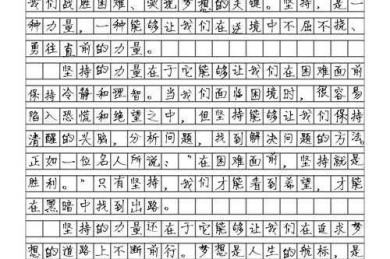 我们战胜困难、实现梦想的关键。坚持，是一
种力量，一种能够让我们在逆境中不屈不挠、
勇往直前的力量。
坚持的力量在于它能够让我们在困难面前
保持冷静和理智。当我们面临困境时，很容易
陷入恐慌和绝望之中，但坚持能够让我们保持
清醒的头脑，分析问题，找到解决问题的方法
正如一位名人所说："在困难面前，坚持就是
胜利。"只有坚持，我们才能看到希望，才能
在黑暗中找到出路。
坚持的力量还在于它能够让我们在追求梦
想的道路上不断前行。梦想是人生的航标，是